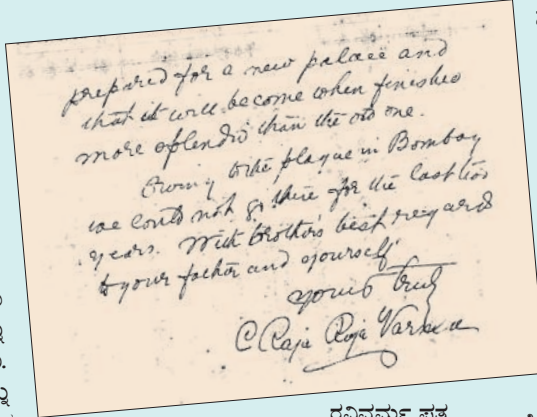 prepared for a new palace and
that it will become when finished
more splendid than the old one.
Owing to the plague in Bombay
we could not go there for the last two
years. With brother's best regards
to your father and yourself
yours truly
C Raja Raja Varma
ರವಿವರ್ಮ ಪತ್ರ